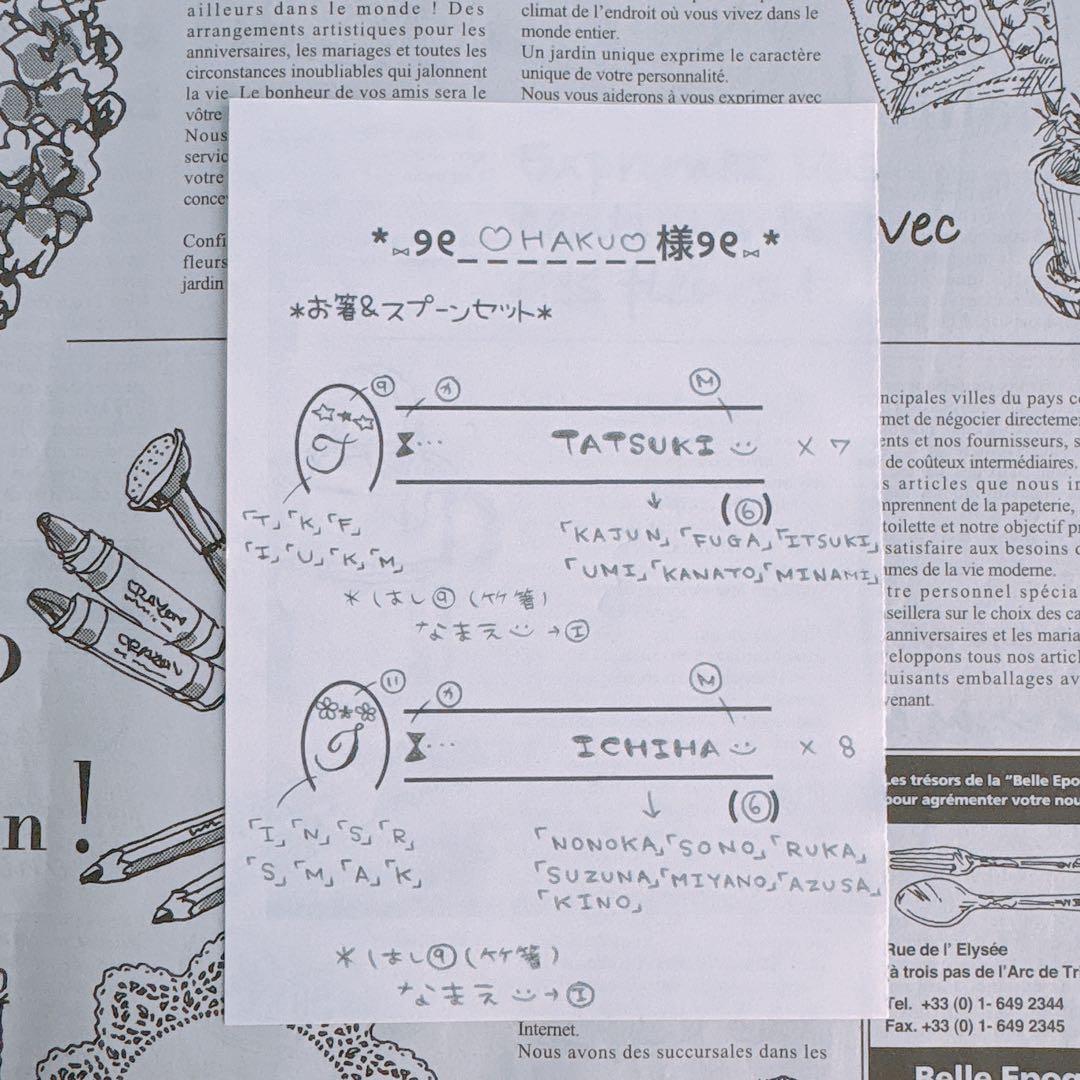 ailleurs dans le monde ! Des
arrangements artistiques pour les
anniversaires, les mariages et toutes les
circonstances inoubliables qui jalonnent
la vie. Le bonheur de vos amis sera le
vôtre
Nous
votre
climat de l'endroit où vous vivez dans le
monde entier.
Un jardin unique exprime le caractère
unique de votre personnalité.
Nous vous aiderons à vous exprimer avec
fleurs
jardin
avec
*⑅୨୧ ♡HAKU♡様୨୧⑅*
*お箸&スプーンセット*
⑨ オ M
☆★☆
T TATSUKI ‿ × 7
↓ (⑥)
「T」「K」「F」
「I」「U」「K」「M」
「KAJUN」「FUGA」「ITSUKI」
「UMI」「KANATO」「MINAMI」
*はし⑨(竹箸)
なまえ‿→Ⓘ
⑪ オ M
I ICHIHA ‿ × 8
↓ (⑥)
「I」「N」「S」「R」
「S」「M」「A」「K」
「NONOKA」「SONO」「RUKA」
「SUZUNA」「MIYANO」「AZUSA」
「KINO」
*はし⑨(竹箸)
なまえ‿→Ⓘ
CRAYON
CRAYON
n !
ncipales villes du pays
met de négocier directement
ents et nos fournisseurs,
de coûteux intermédiaires.
articles que nous
mprennent de la papeterie,
toilette et notre objectif
satisfaire aux besoins
mes de la vie moderne.
tre personnel
seillera sur le choix des
anniversaires et les
eloppons tous nos
uisants emballages
venant.
Les trésors de la "Belle
pour agrémenter votre
Rue de l' Elysée
à trois pas de l'Arc de
Tel. +33 (0) 1- 649 2344
Fax. +33 (0) 1- 649 2345
Belle Epoq
Internet.
Nous avons des succursales dans les